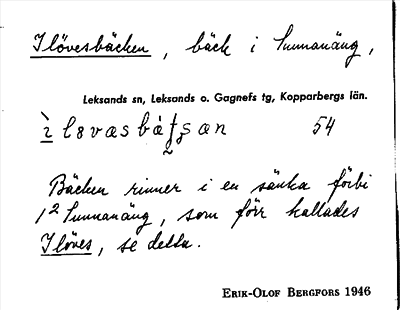 Ilövesbäcken, bäck i Sunnanäng,
Leksands sn, Leksands o. Gagnefs tg, Kopparbergs län.
54
Bäcken rinner i en sänka förbi
1² Sunnanäng, som förr kallades
Ilöves, se detta.
ERIK-OLOF BERGFORS 1946